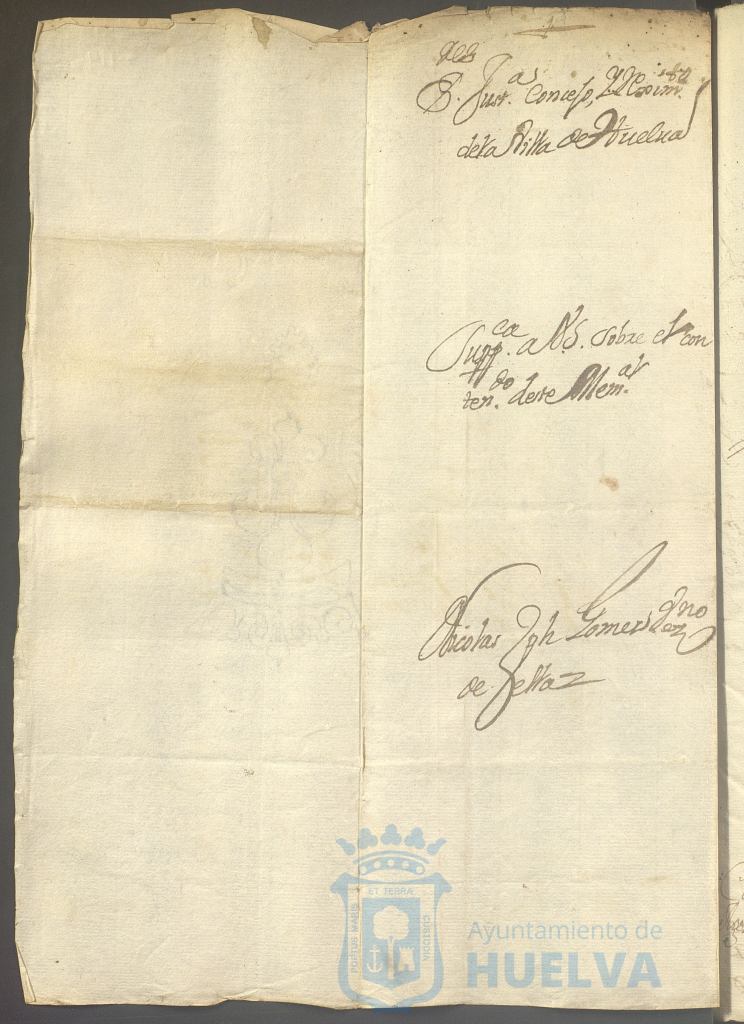 S. Just.as Concejo, Y Rexim.to
de la Villa de Huelva
Supp.ca a V.S. sobre el con
ten.do deste Mem.al
Nicolas Jph Gomers
de Zella
PORTUS MARIS ET TERRÆ CUSTODIA
Ayuntamiento de
HUELVA